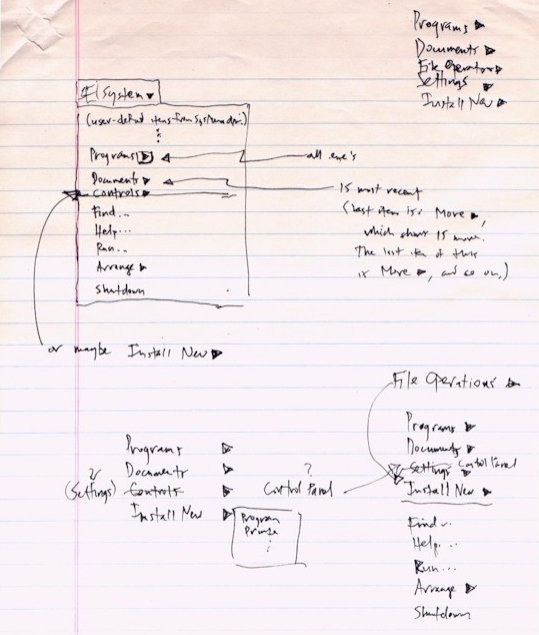 Programs ▶
Documents ▶
File Operations ▶
Settings ▶
Install New ▶
System ▼
(user-defined items from System dir.)
Programs ▶
all exe's
Documents ▶
Controls ▶
Find...
Help...
Run...
Arrange ▶
Shutdown
15 most recent
(last item is: More ▶,
which shows 15 more.
The last item of this
is More ▶, and so on.)
or maybe Install New ▶
File Operations ▶
Programs ▶
Documents ▶
Settings ▶ Control Panel
Install New ▶
Find...
Help...
Run...
Arrange ▶
Shutdown
Programs ▶
Documents ▶
?
(Settings) Controls ▶
Install New ▶
Program
Printer
?
Control Panel